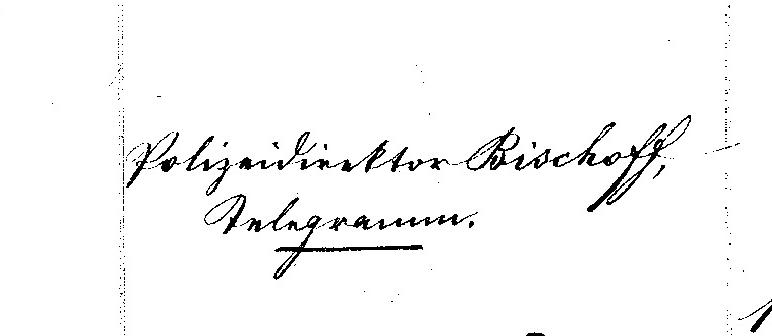 Polizeidirektor Bischoff,
Telegramm.